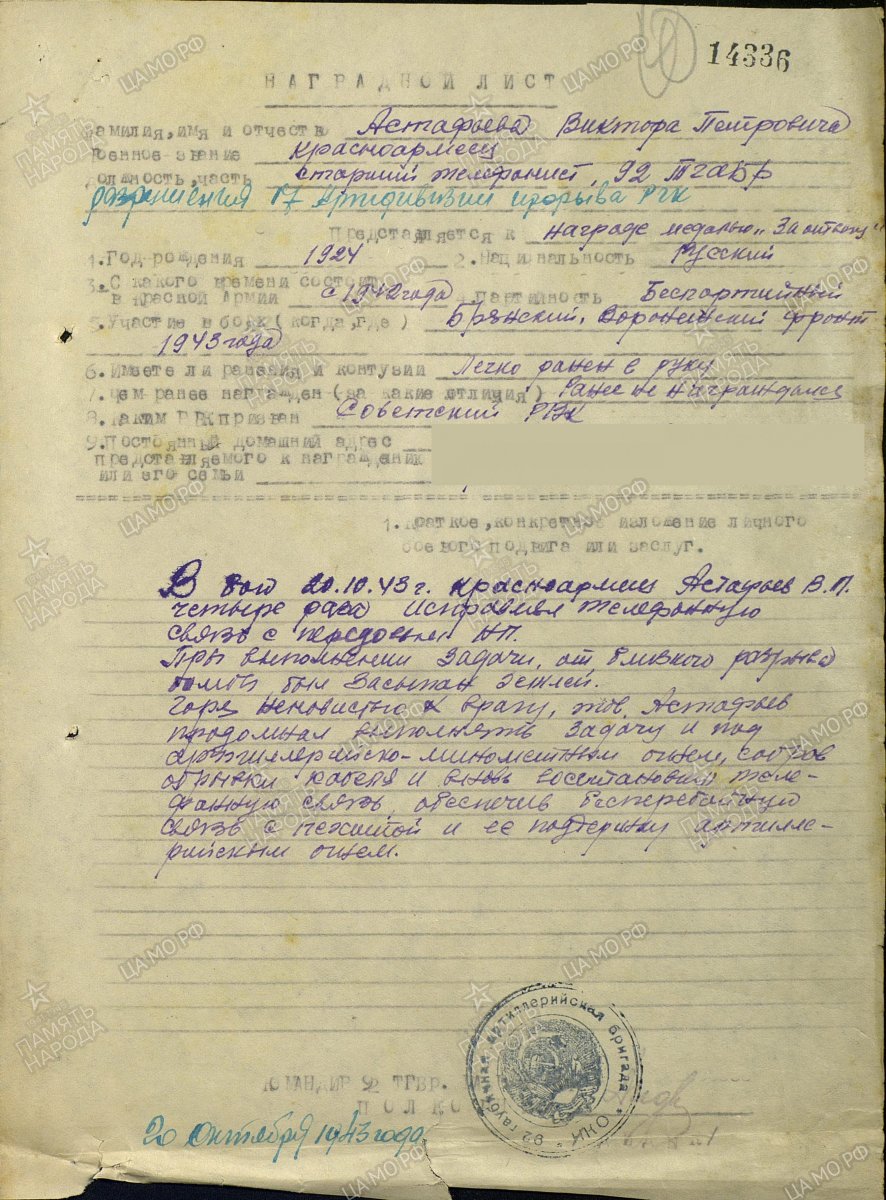 14336
НАГРАДНОЙ ЛИСТ
Фамилия, имя и отчество Астафьева Виктора Петровича
военное звание красноармеец
должность, часть старший телефонист, 92 ТГАБР
17 Артдивизии прорыва РГК
Представляется к награде медалью „За отвагу"
1. Год рождения 1924 2. Национальность Русский
3. С какого времени состоит
в Красной Армии с 1942 года 4. партийность Беспартийный
5. Участие в боях (когда, где) Брянский, Воронежский фронт
1943 года
6. Имеете ли ранения и контузии Легко ранен в руку
7. Чем ранее награжден (за какие отличия) Ранее не награждался
8. Каким РВК призван Советский РВК
9. Постоянный домашний адрес
представляемого к награждению
или его семьи
1. Краткое, конкретное изложение личного
боевого подвига или заслуг.
В бою 20.10.43 г. красноармеец Астафьев В.П.
четыре раза исправлял телефонную
связь с передовым НП.
При выполнении задачи, от близкого разрыва
бомбы был засыпан землей.
Горя ненавистью к врагу, тов. Астафьев
продолжал выполнять задачу и под
артиллерийско-минометным огнем, собрав
обрывки кабеля и вновь восстановил теле-
фонную связь, обеспечив бесперебойную
связь с пехотой и ее поддержку артилле-
рийским огнем.
КОМАНДИР 92 ТГБР.
ПОЛКО
92 гаубичная артиллерийская бригада
20 октября 1943 года
ПАМЯТЬ НАРОДА
ЦАМО.РФ